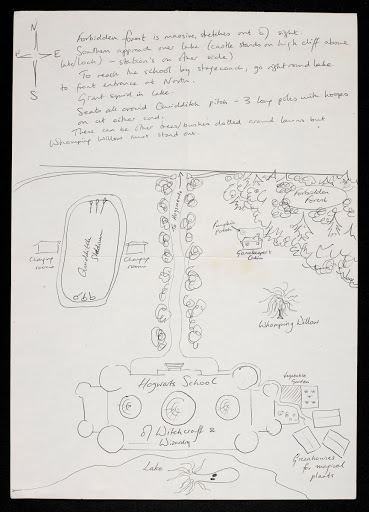 N
W E
S
Forbidden forest is massive, stretches out of sight.
Southern approach over lake (castle stands on high cliff above
lake/loch) – station's on other side)
To reach the school by stagecoach, go right round lake
to front entrance at North.
Giant squid in Lake.
Seats all around Quidditch pitch – 3 long poles with hoops
on at either end.
There can be other trees/bushes dotted around lawns but
Whomping Willow must stand out.
to Hogsmeade
Forbidden
Forest
Pumpkin
Patch
Gamekeeper's
Cabin
Quidditch
Stadium
Changing
rooms
Changing
rooms
Whomping Willow
Hogwarts School
of Witchcraft &
Wizardry
Vegetable
Garden
Greenhouses
for magical
plants
Lake